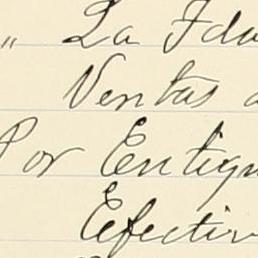 " La Ida
Ventas a
Por Entiqu
Efectiv